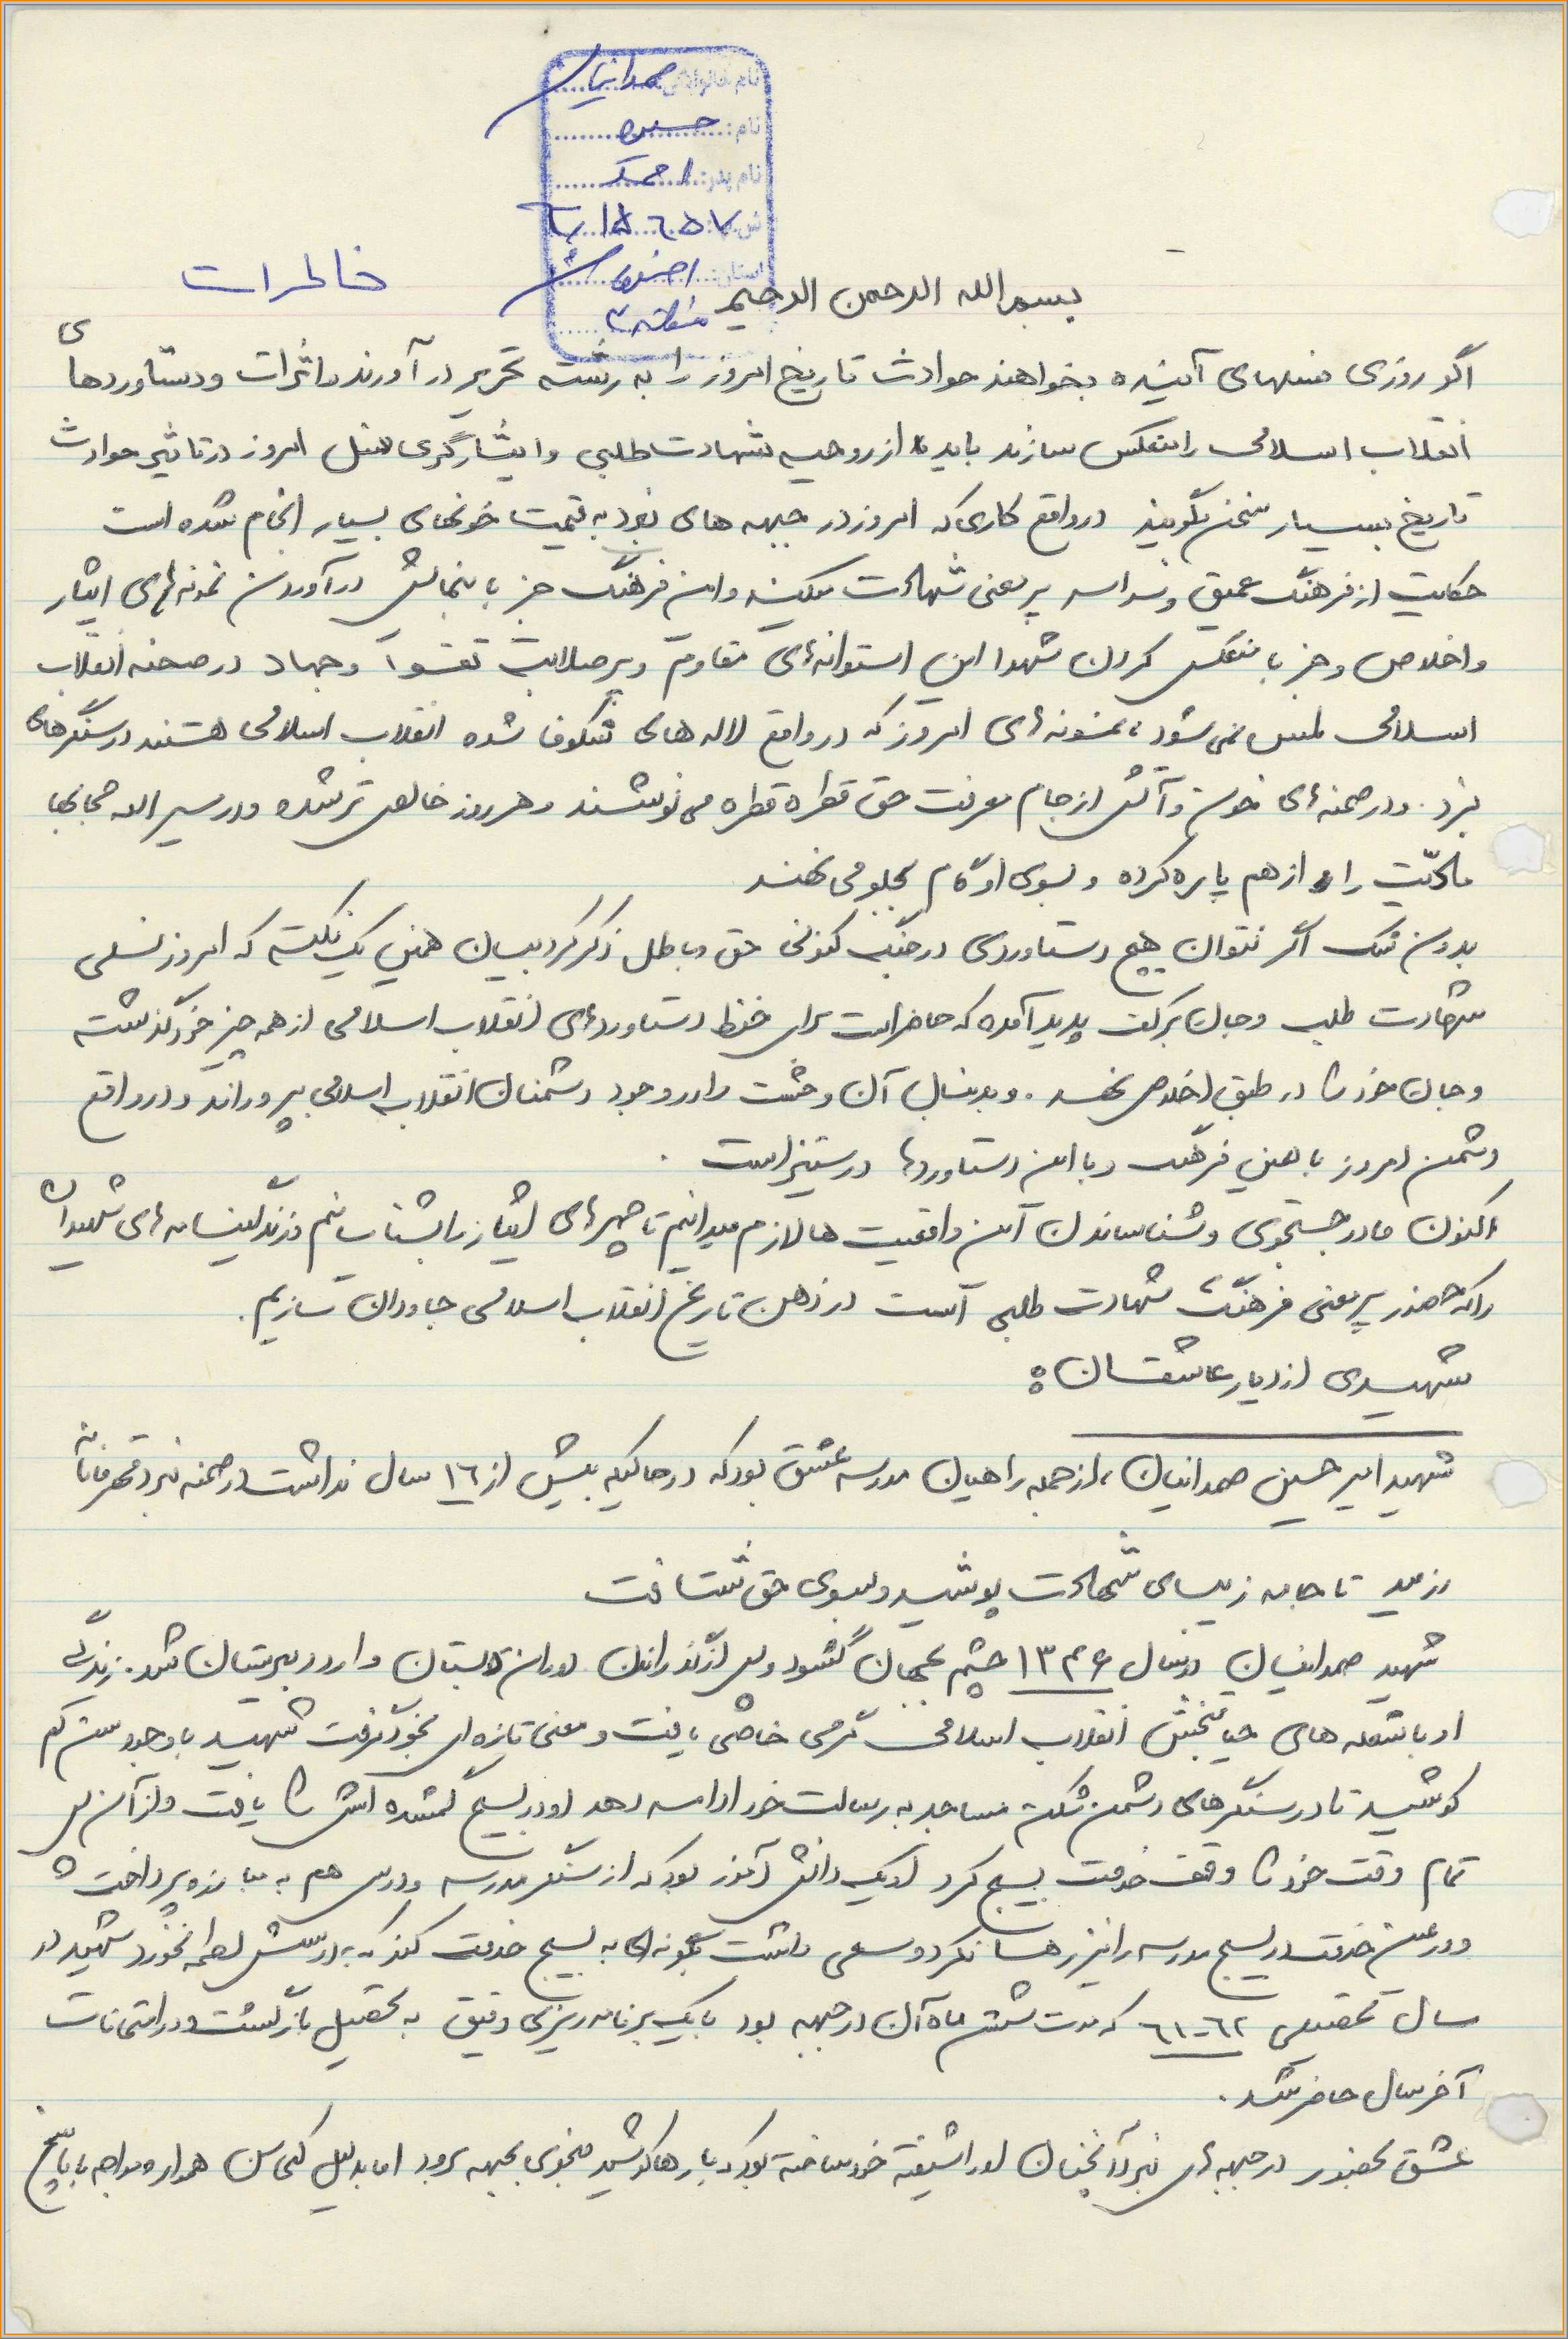 نام خانوادگی: صمدانیان
نام: حسین
نام پدر: احمد
ش.پ: ۱۵۶۵۷
استان: اصفهان
منطقه ۲
خاطرات
بسم الله الرحمن الرحیم
اگر روزی نسلهای آینده بخواهند حوادث تاریخ امروز را به رشته تحریر در آورند و اثرات و دستاوردهای
انقلاب اسلامی را منعکس سازند باید از روحیه شهادت طلبی و ایثارگری نسل امروز در تاثیر حوادث
تاریخ بسیار سخن بگویند در واقع کاری که امروز در جبهه های نبرد به قیمت خونهای بسیار انجام شده است
حکایت از فرهنگ عمیق و پر معنی شهادت میکند و این فرهنگ جز با بنمایش در آوردن نمونه های ایثار
و اخلاص و جز با منعکس کردن شهدا این استوانه های مقاومت و پر صلابت تقوا و جهاد در صحنه انقلاب
اسلامی ملمس نمی شود، نمونه های امروز که در واقع لاله های شکوفا شده انقلاب اسلامی هستند در سنگرهای
نبرد. و در صحنه های خون و آتش از جام معرفت حق قطره قطره می نوشند و هر روز خالص تر شده و در سیر الی الله حجابها
مادیت را از هم پاره کرده و بسوی او گام بجلو می نهند
بدون شک اگر نتوان هیچ دستاوردی در جنگ کنونی حق و باطل ذکر کرد بیان همین یک نکته که امروز نسلی
شهادت طلب و جان برکف پدید آمده که حاضر است برای حفظ دستاوردهای انقلاب اسلامی از همه چیز خود گذشته
و جان خود را در طبق اخلاص نهد. و بدنبال آن وحشت را در وجود دشمنان انقلاب اسلامی بپروراند و در واقع
دشمن امروز با همین فرهنگ و با این دستاوردها در ستیز است.
اکنون ما در جستجوی و شناساندن این واقعیت ها لازم میدانیم تا چهره های ایثار را بشناسانیم و زندگینامه های شهیدان
را که حضور پر معنی فرهنگ شهادت طلبی است در ذهن تاریخ انقلاب اسلامی جاودان سازیم.
شهیدی از دیار عاشقان:
شهید امیر حسین صمدانیان، از جمله راهیان مدرسه عشق بود که در حالیکه بیش از ۱۶ سال نداشت در صحنه نبرد قهرمانانه
رزمید تا جامه زیبای شهادت پوشید و بسوی حق شتافت
شهید صمدانیان در سال ۱۳۴۶ چشم بجهان گشود و پس از گذراندن دوران دبستان وارد دبیرستان شد. زندگی
او با شعله های حیاتبخش انقلاب اسلامی گرمی خاصی یافت و معنی تازه ای بخود گرفت شهید با وجود سن کم
کوشید تا در سنگرهای دشمن شکن مساجد به رسالت خود ادامه دهد او در بسیج گمشده اش را یافت و از آن پس
تمام وقت خود را وقف خدمت بسیج کرد او یک دانش آموز بود که از سنگر مدرسه و درس هم به مبارزه پرداخت
و در عین خدمت در بسیج مدرسه را نیز رها نکرد و سعی داشت بگونه ای به بسیج خدمت کند که به درسش لطمه نخورد شهید در
سال تحصیلی ۶۲-۶۱ که مدت شش ماه آن در جبهه بود با یک برنامه ریزی دقیق به تحصیل بازگشت و در امتحانات
آخر سال حاضر شد.
عشق بحضور در جبهه های نبرد آنچنان او را شیفته خود ساخته بود که بارها کوشید بنحوی بجبهه برود اما بدلیل کمی سن همواره مواجه با پاسخ